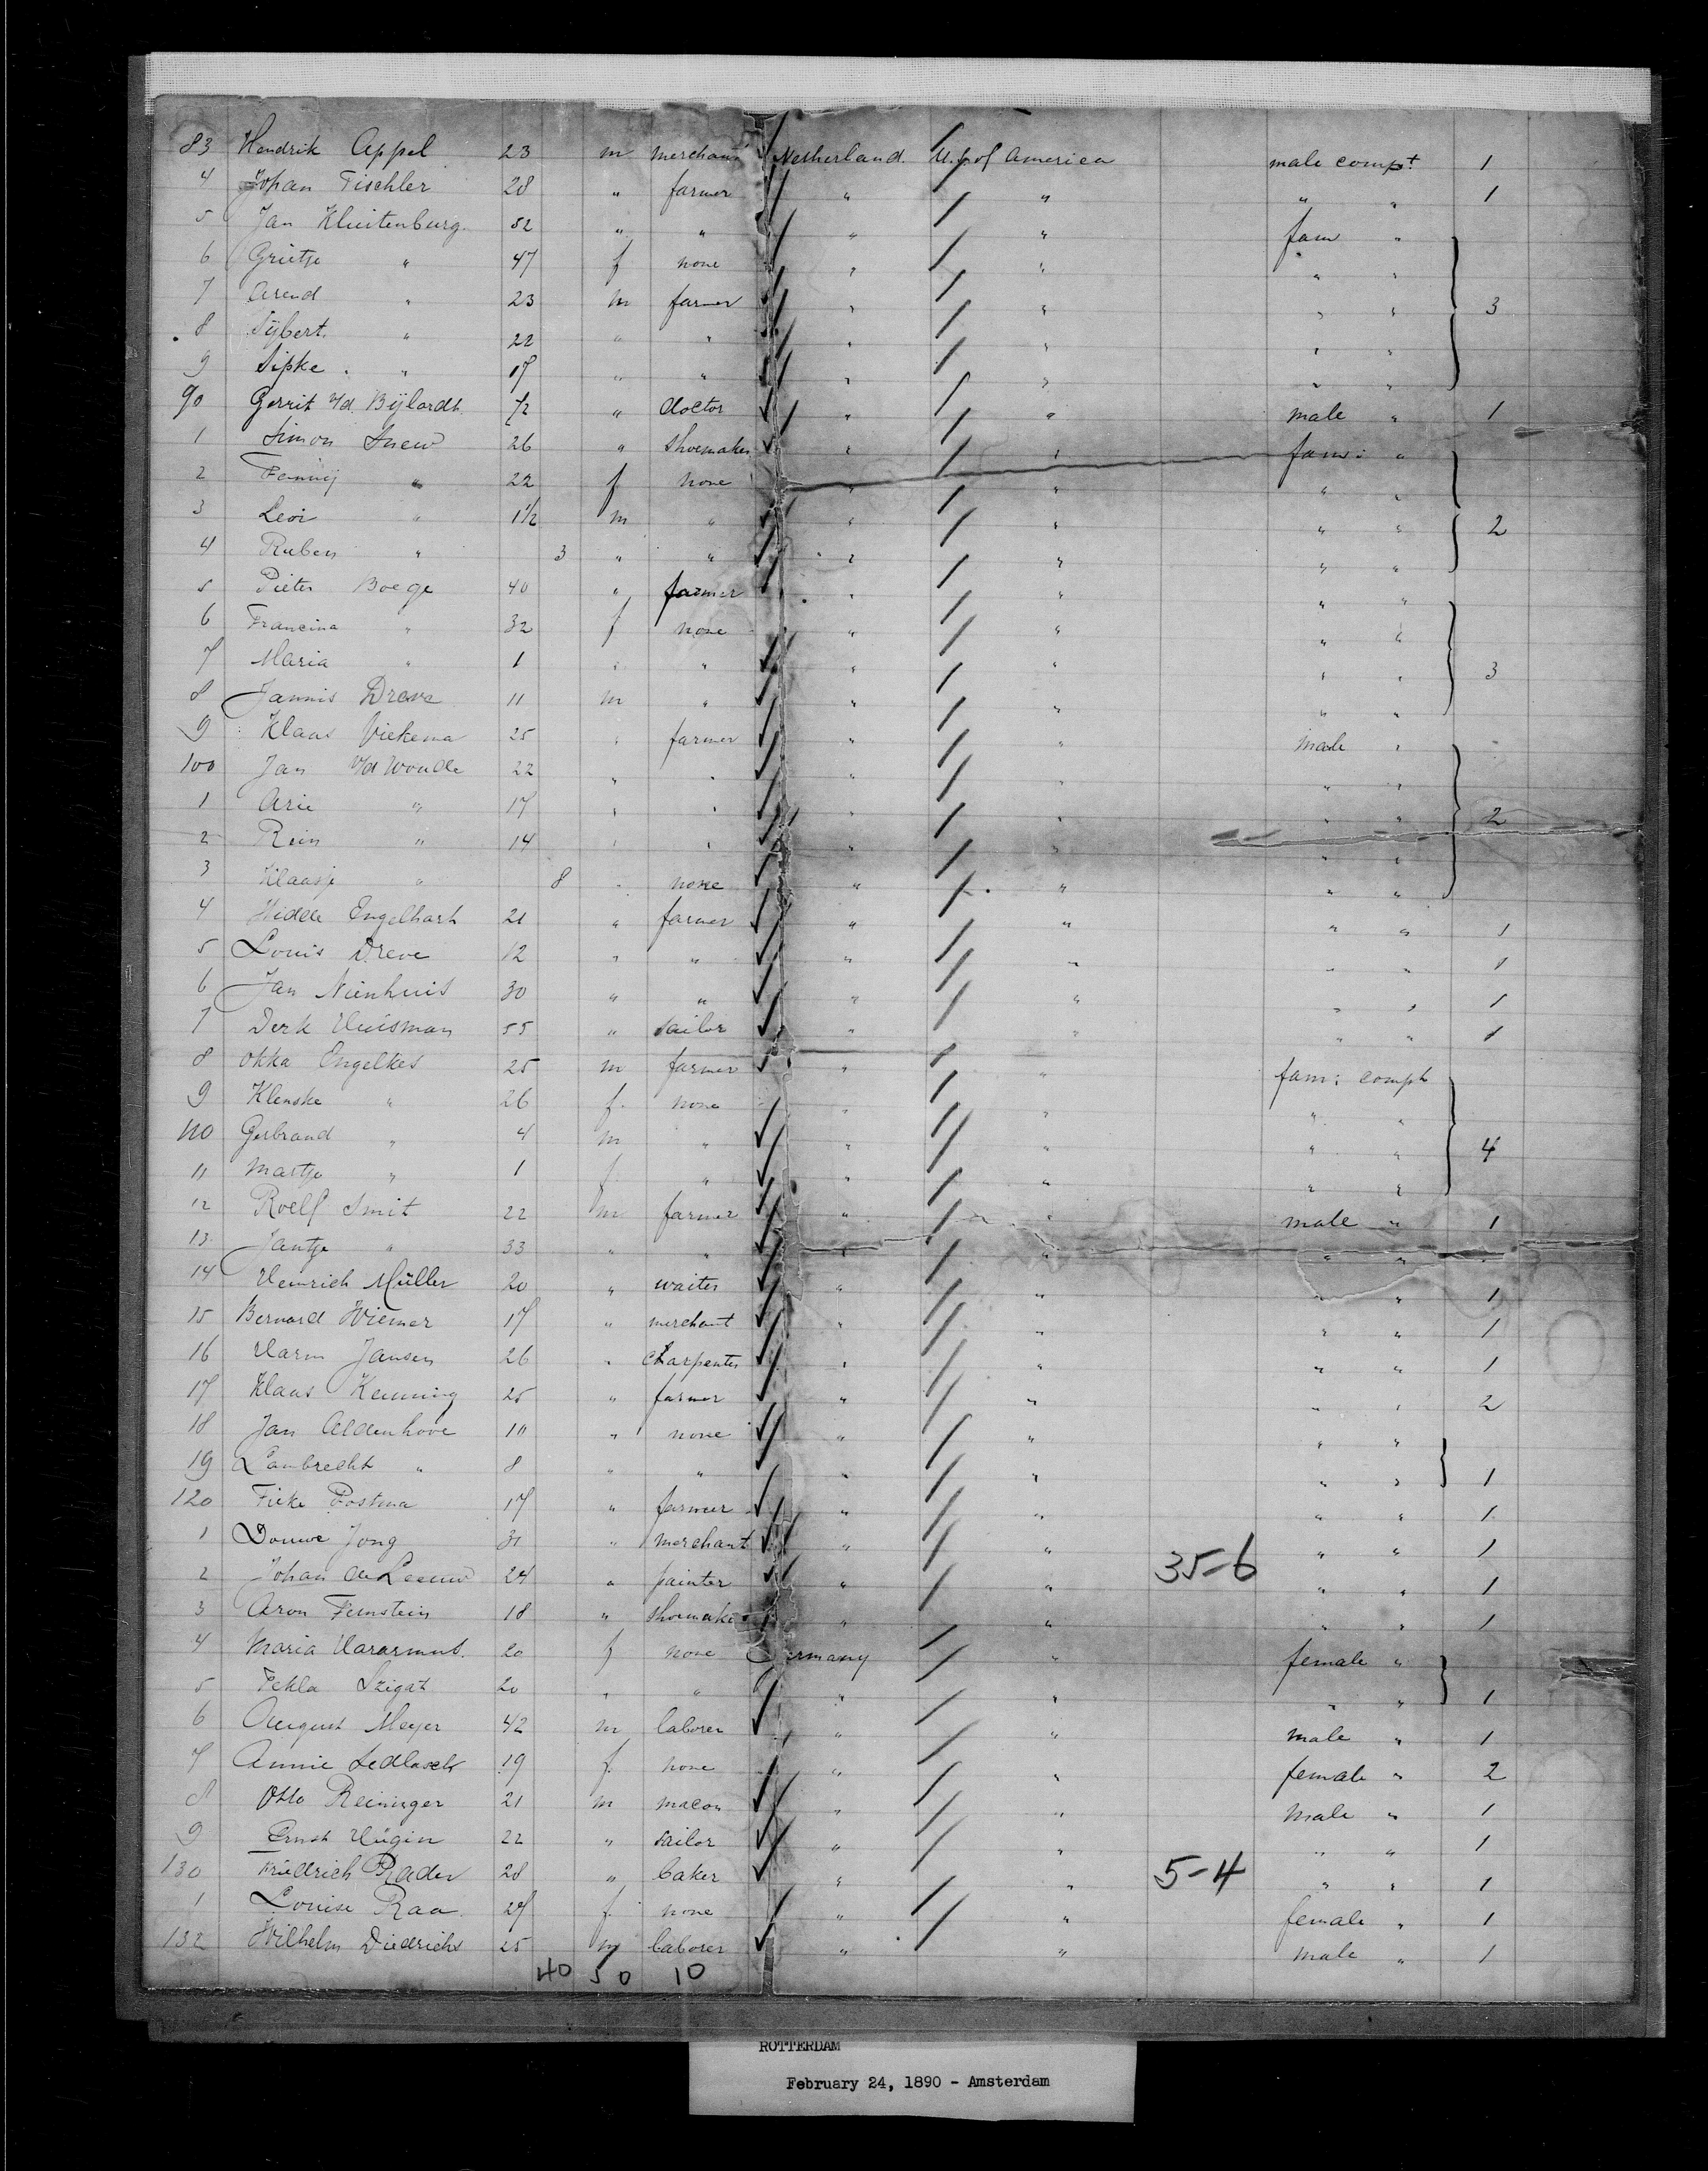 83 Hendrik Appel 23 m merchant Netherland. U.S. of America male compt 1
4 Johan Tischler 28 " farmer " " " " 1
5 Jan Kluitenburg. 52 " " " " fam "
6 Grietje " 47 f none " " " "
7 Arend " 23 m farmer " " " " 3
8 Sijbert. " 22 " " " " " "
9 Sipke " 17 " " " " " "
90 Gerrit v/d. Bijlardt. " doctor " " male " 1
1 Simon Snew 26 " shoemaker " " fam: "
2 " 22 f none " " " "
3 Levi " 1½ m " " " " " 2
4 Ruben " 3 " " " " " "
5 Pieter Boege 40 " farmer " " " "
6 Francina " 32 f none " " " "
7 Maria " 1 " " " " " " 3
8 Jannis Dreve 11 m " " " " "
9 Klaas Viekema 25 " farmer " " male "
100 Jan v/d Woude 22 " " " " " "
1 Arie " 17 " " " " " " 2
2 Rein " 14 " " " " " "
3 Klaasje " 8 " none " " " "
4 Hidde Engelhart 21 " farmer " " " " 1
5 Louis Dreve 12 " " " " " " 1
6 Jan Nienhuis 30 " " " " " " 1
7 Derk Huisman 55 " sailor " " " " 1
8 Okka Engelkes 25 m farmer " " fam: compt
9 Klenske " 26 f. none " " " "
110 Gerbrand " 4 m " " " " " 4
11 Martje " 1 f " " " " "
12 Roelf Smit 22 m farmer " " male " 1
13 Jantje " 33 " " " " " "
14 Heinrich Müller 20 " waiter " " " " 1
15 Bernard Wiemer 17 " merchant " " " " 1
16 Harm Jansen 26 " charpenter " " " " 1
17 Klaas Kenning 25 " farmer " " " " 2
18 Jan Aldenhove 10 " none " " " "
19 Lambrecht " 8 " " " " " " 1
120 Fieke Postma 17 " farmer " " " " 1
1 Douwe Jong 31 " merchant " " " " 1
2 Johan de Leeuw 24 " painter " " 35-6 " " 1
3 Aron Fernstein 18 " shoemaker " " " " 1
4 Maria 20 f none Germany " female "
5 Tekla Szigat 20 " " " " " " 1
6 August Meyer 42 m laborer " " male " 1
7 Annie Sedlasch 19 f. none " " female " 2
8 Otto Reininger 21 m macon " " male " 1
9 Ernst Hügin 22 " sailor " " " " 1
130 Friedrich Rader 28 " baker " " 5-4 " " 1
1 Louise Raa 27 f. none " " female " 1
132 Wilhelm Diedrichs 25 m laborer " " male " 1
40 50 10
ROTTERDAM
February 24, 1890 - Amsterdam